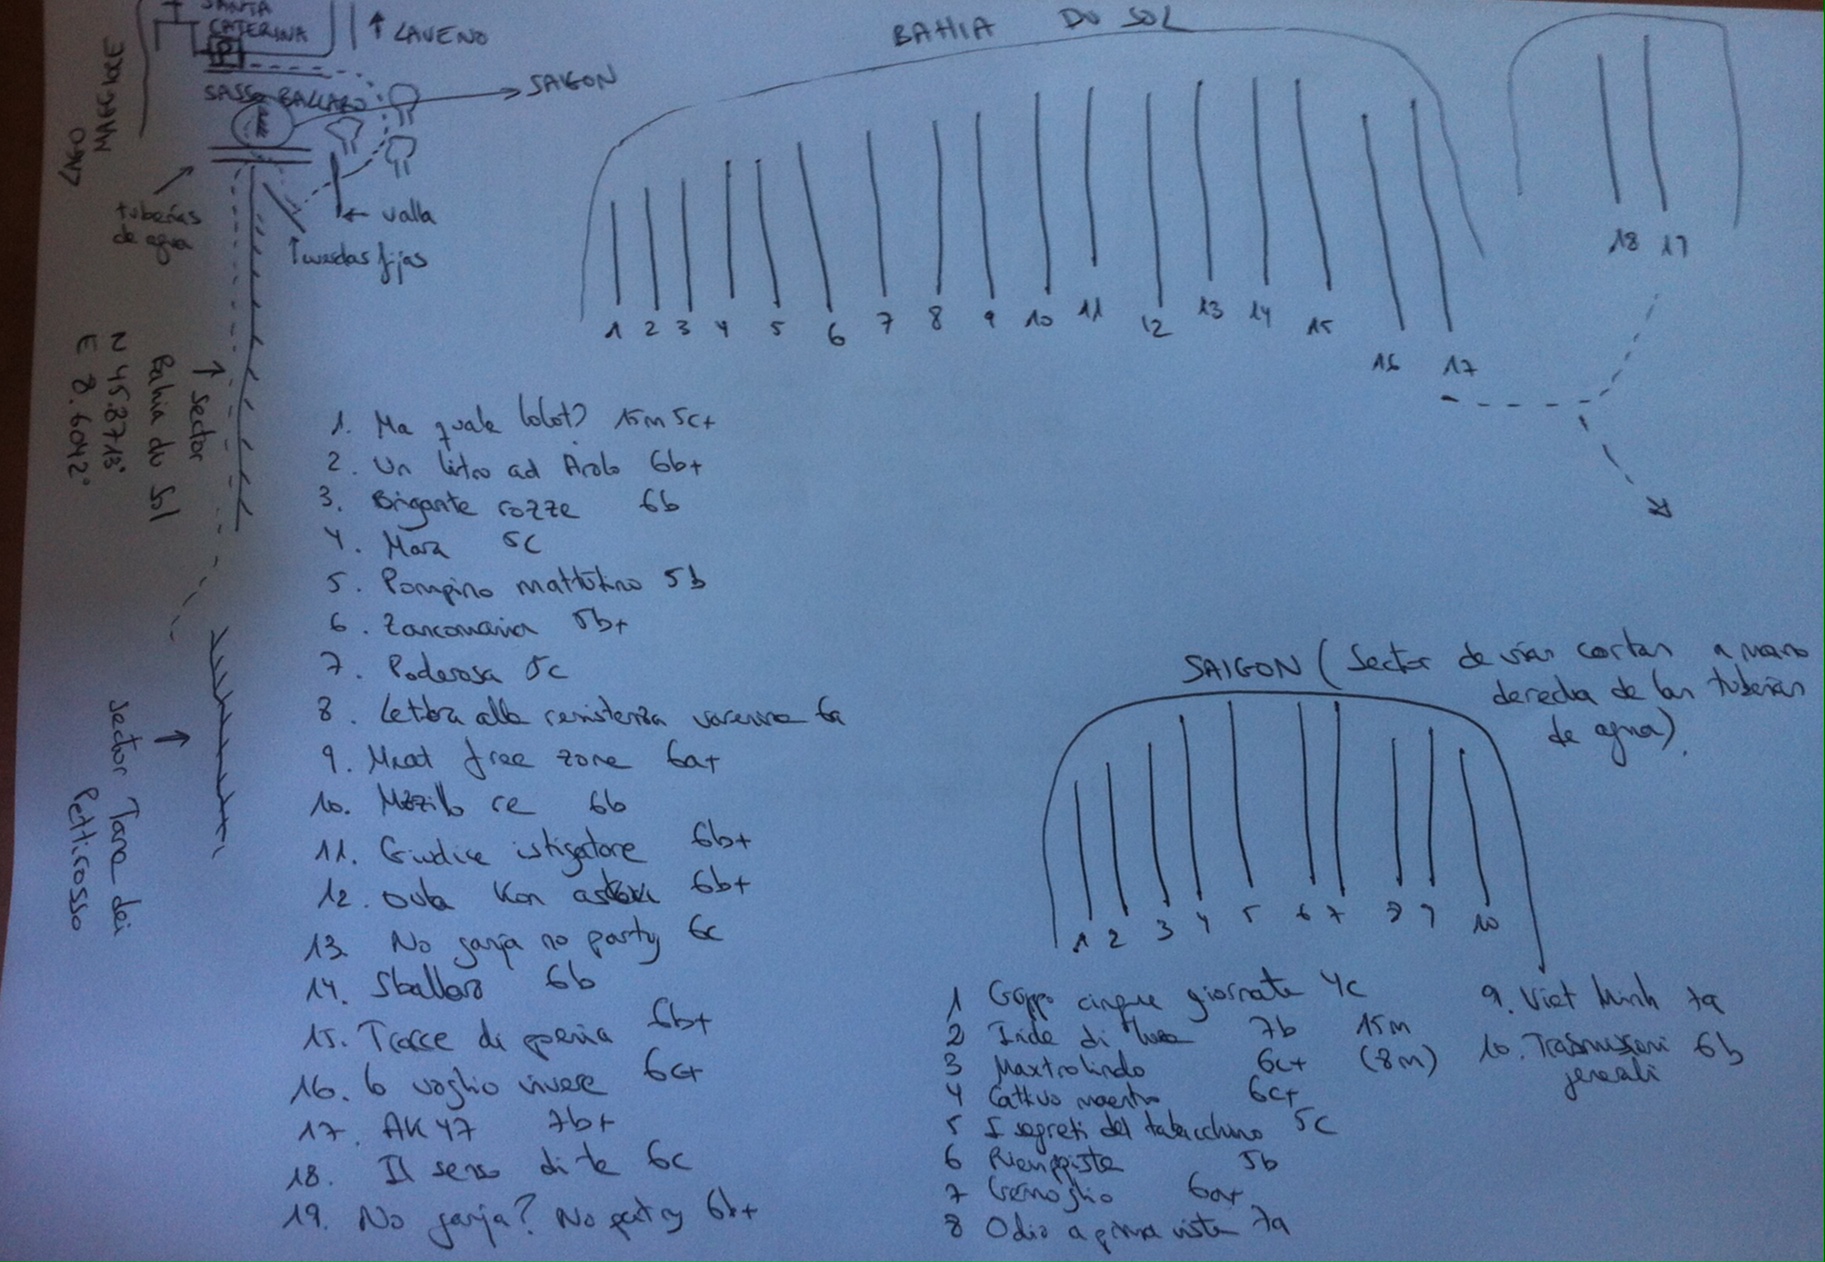 SANTA
CATERINA
↑ LAVENO
P
SASSO BALLARO
→ SAIGON
LAGO
MAGGIORE
tuberías
de agua
← valla
↑ cuerdas fijas
↑ Sector
Bahia do Sol
N 45.8713°
E 8.6042°
Sector Tana dei
Pettirosso
BAHIA DO SOL
1 2 3 4 5 6 7 8 9 10 11 12 13 14 15 16 17
18 19
1. Ma quale 15m 5c+
2. Un litro ad Arolo 6b+
3. Brigante cozze 6b
4. Mara 5c
5. Pompino mattutino 5b
6. Zanconaria 5b+
7. Poderosa 5c
8. Lettera alla resistenza varesina 6a
9. Meat free zone 6a+
10. re 6b
11. Giudice istigatore 6b+
12. Outa Kon 6b+
13. No ganja no party 6c
14. Sballaro 6b
15. Tracce di 6b+
16. Io voglio vivere 6c+
17. AK 47 7b+
18. Il senso di te 6c
19. No ganja? No party 6b+
SAIGON (Sector de vías cortas a mano
derecha de las tuberías
de agua).
1 2 3 4 5 6 7 8 9 10
1 cinque giornate 4c
2 di 7b 15m
3 Maxtrolindo 6c+ (8m)
4 Cattivo maestro 6c+
5 I segreti del tabacchino 5c
6 5b
7 Germoglio 6a+
8 Odio a prima vista 7a
9. Viet Minh 7a
10. Trasmissioni 6b